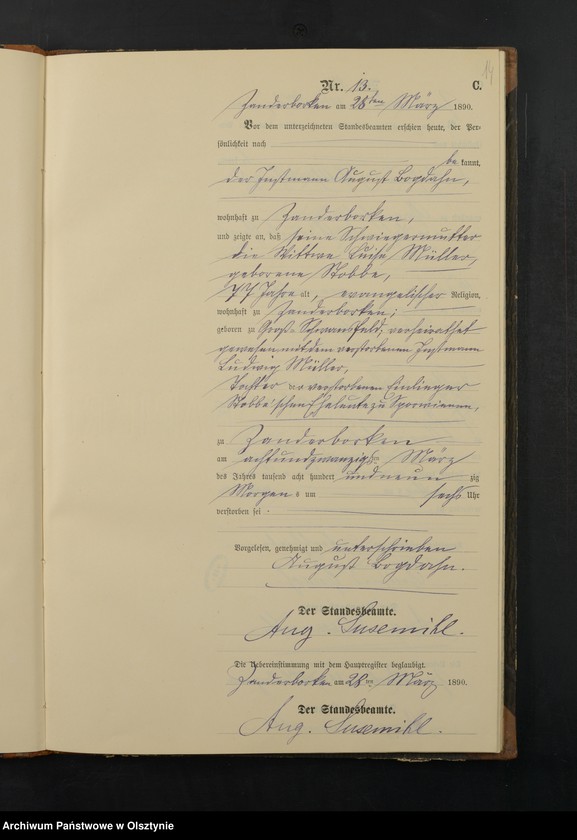 14
Nr. 13.
C.
Zanderborken am 28ten März 1890.
Vor dem unterzeichneten Standesbeamten erschien heute, der Per-
sönlichkeit nach
be kannt,
der Instmann August Bogdahn,
wohnhaft zu Zanderborken,
und zeigte an, daß seine Schwiegermutter
die Wittwe Luise Müller,
geborene Stobbe,
77 Jahre alt, evangelischer Religion,
wohnhaft zu Zanderborken;
geboren zu Groß Schwansfeld; verheirathet
gewesen mit dem verstorbenen Instmann
Ludwig Müller,
Tochter der verstorbenen Einlieger
Stobbe'schen Eheleute zu
zu Zanderborken
am achtundzwanzigsten März
des Jahres tausend acht hundert und neun zig
Morgens um sechs Uhr
verstorben sei.
Vorgelesen, genehmigt und unterschrieben
August Bogdahn.
Der Standesbeamte.
Aug. Susemihl.
Die Uebereinstimmung mit dem Hauptregister beglaubigt.
Zanderborken am 28ten März 1890.
Der Standesbeamte.
Aug. Susemihl.
Archiwum Państwowe w Olsztynie